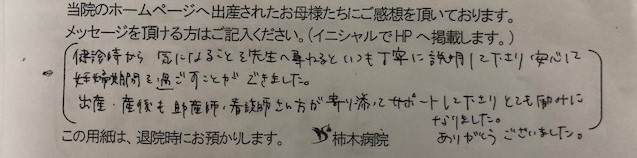 当院のホームページへ出産されたお母様たちにご感想を頂いております。
メッセージを頂ける方はご記入ください。(イニシャルでHPへ掲載します。)
健診時から 気になることを先生へ尋ねるといつも丁寧に説明して下さり 安心して
妊婦期間を過ごすことができました。
出産・産後も助産師・看護師さん方が寄り添ってサポートして下さりとても励みに
なりました。
ありがとうございました。
この用紙は、退院時にお預かりします。 柿木病院